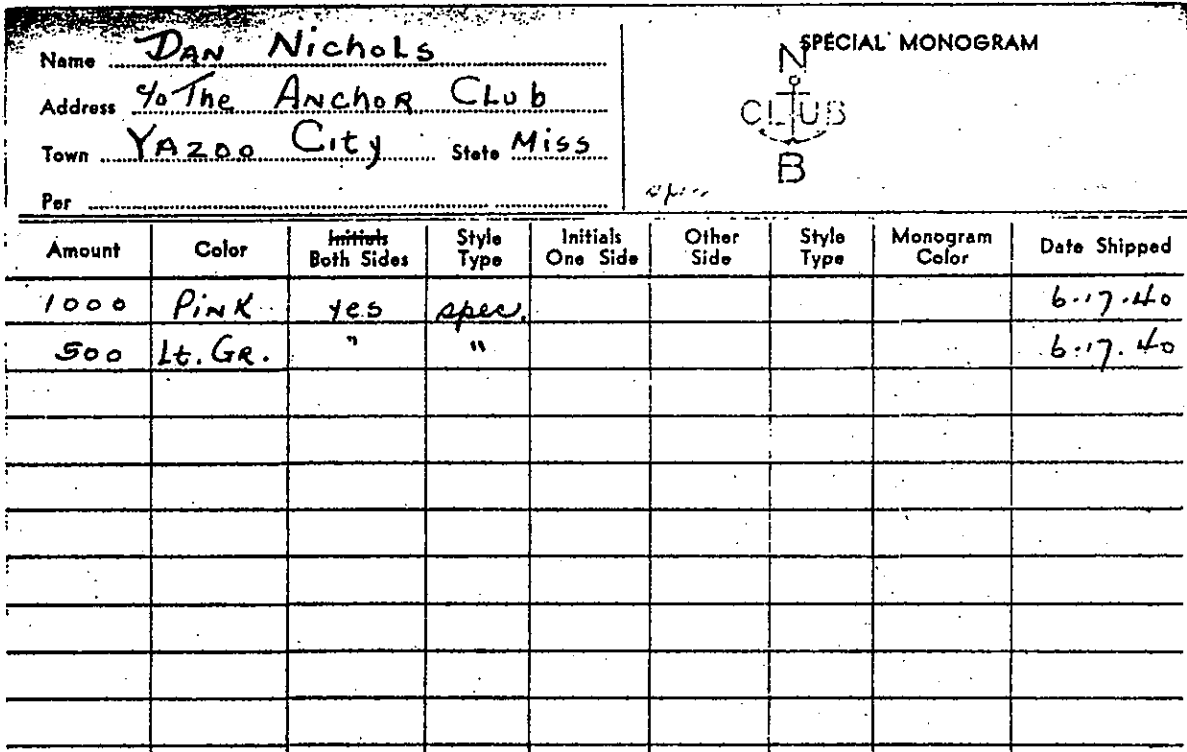 Name Dan Nichols
Address c/o The Anchor Club
Town Yazoo City State Miss
Per
SPECIAL MONOGRAM
N
CLUB
B
spec
Amount Color Initials Both Sides Style Type Initials One Side Other Side Style Type Monogram Color Date Shipped
1000 Pink yes spec. 6-17-40
500 Lt. Gr. " " 6-17-40